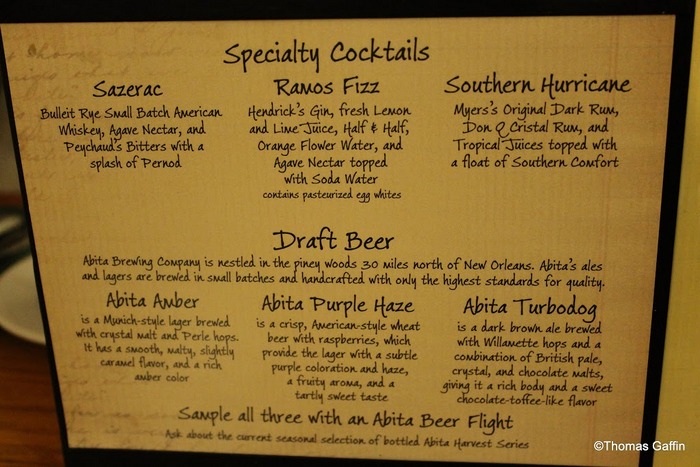 Specialty Cocktails
Sazerac
Bulleit Rye Small Batch American
Whiskey, Agave Nectar, and
Peychaud's Bitters with a
splash of Pernod
Ramos Fizz
Hendrick's Gin, fresh Lemon
and Lime Juice, Half & Half,
Orange Flower Water, and
Agave Nectar topped
with Soda Water
contains pasteurized egg whites
Southern Hurricane
Myers's Original Dark Rum,
Don Q Cristal Rum, and
Tropical Juices topped with
a float of Southern Comfort
Draft Beer
Abita Brewing Company is nestled in the piney woods 30 miles north of New Orleans. Abita's ales
and lagers are brewed in small batches and handcrafted with only the highest standards for quality.
Abita Amber
is a Munich-style lager brewed
with crystal malt and Perle hops.
It has a smooth, malty, slightly
caramel flavor, and a rich
amber color
Abita Purple Haze
is a crisp, American-style wheat
beer with raspberries, which
provide the lager with a subtle
purple coloration and haze,
a fruity aroma, and a
tartly sweet taste
Abita Turbodog
is a dark brown ale brewed
with Willamette hops and a
combination of British pale,
crystal, and chocolate malts,
giving it a rich body and a sweet
chocolate-toffee-like flavor
Sample all three with an Abita Beer Flight
Ask about the current seasonal selection of bottled Abita Harvest Series
©Thomas Gaffin